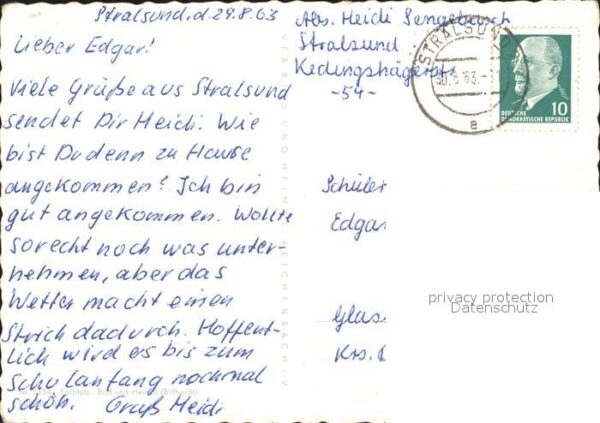 Stralsund, d. 29.8.63
Lieber Edgar!
Viele Grüße aus Stralsund
sendet Dir Heidi. Wie
bist Du denn zu Hause
angekommen? Ich bin
gut angekommen. Wollte
so recht noch was unter-
nehmen, aber das
Wetter macht einen
Strich dadurch. Hoffent-
lich wird es bis zum
Schulanfang nochmal
schön. Gruß Heidi
Abs. Heidi
Stralsund
-54-
STRALSUND
30.8.63.-
a
10
DEUTSCHE
DEMOKRATISCHE REPUBLIK
Schüler
Edgar
Glas
Krs.
privacy protection
Datenschutz